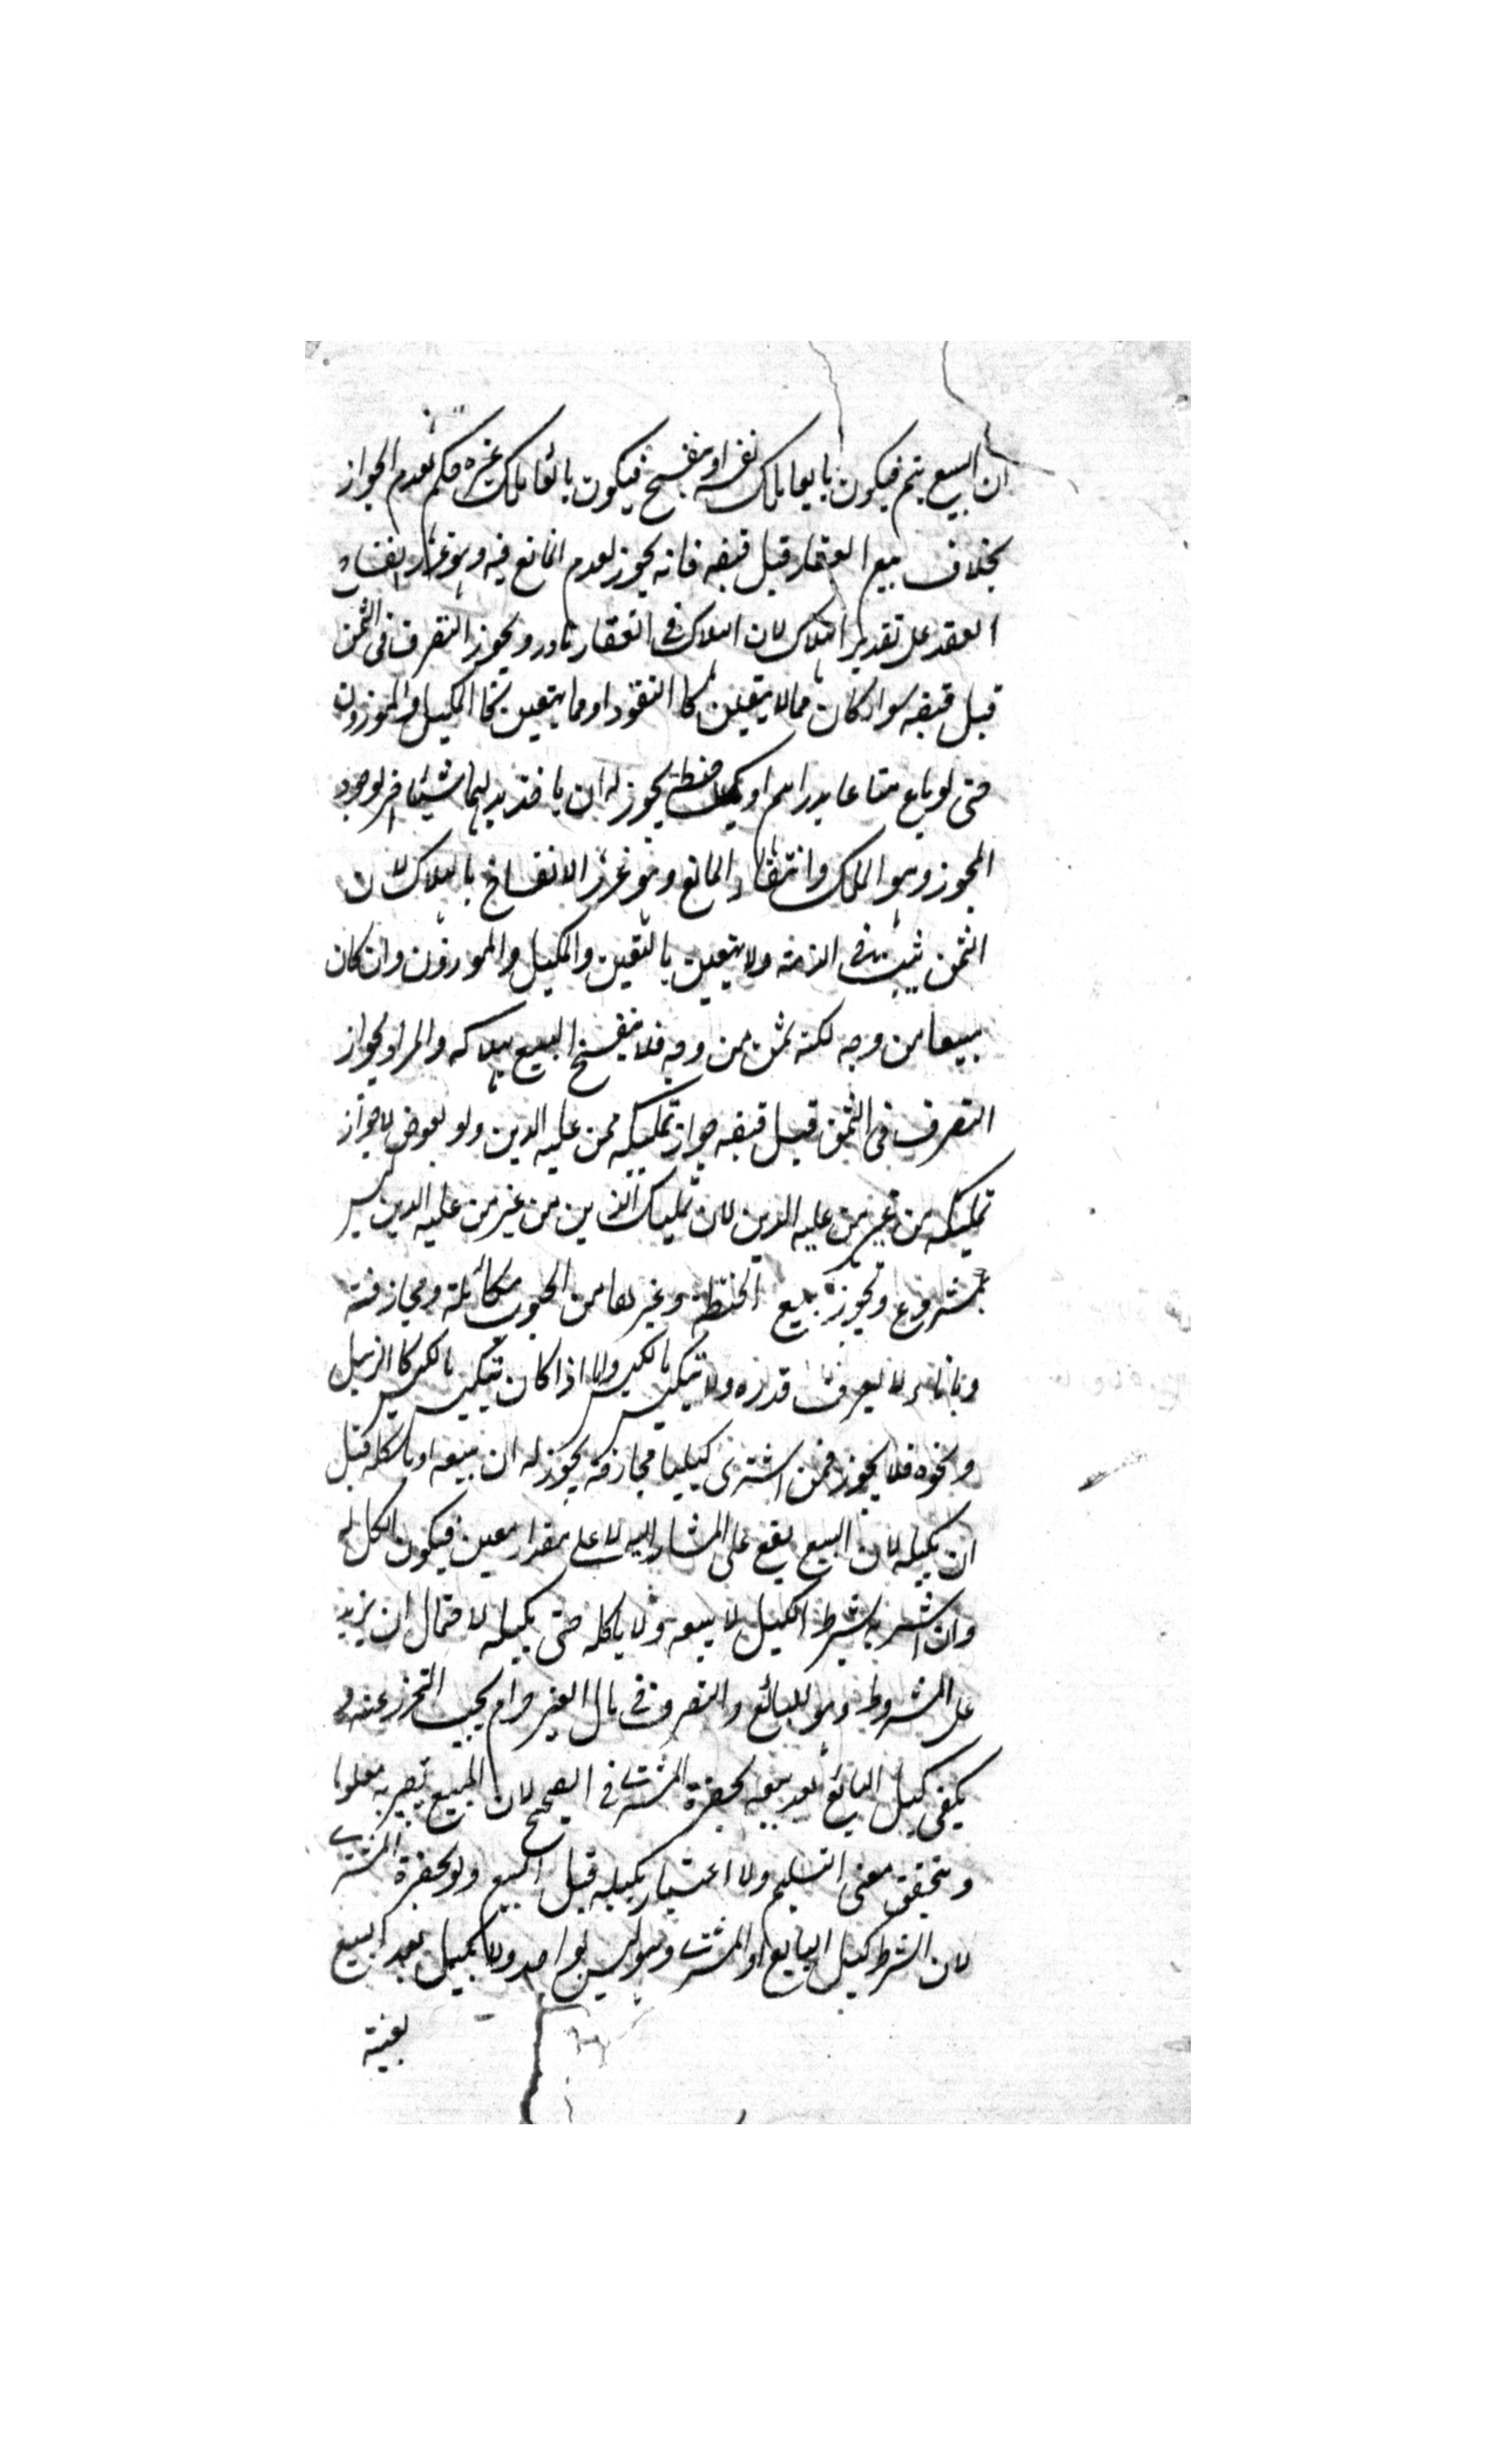 ان البيع يتم فيكون بايعا ملك نفسه او ينفسخ فيكون بائعا ملك غيره فحكم بعدم الجواز
بخلاف بيع العقار قبل قبضه فانه يجوز لعدم المانع فيه وهو غرر انفساخ
العقد على تقدير الهلاك لان الهلاك في العقار نادر ويجوز التصرف في الثمن
قبل قبضه سواء كان مما لا يتعين كالنقود او مما يتعين كالمكيل والموزون
حتى لو باع متاعا بدراهم او بكيل حنطة يجوز له ان ياخذ بدلهما شيئا اخر لوجود
المجوز وهو الملك وانتفاء المانع وهو غرر الانفساخ بالهلاك لان
الثمن يثبت في الذمة ولا يتعين بالتعين والمكيل والموزون وان كان
مبيعا من وجه لكنه ثمن من وجه فلا ينفسخ البيع بهلاكه والمراد بجواز
التصرف في الثمن قبل قبضه جواز تمليكه ممن عليه الدين ولو بعوض لا جواز
تمليكه من غير من عليه الدين لان تمليك الدين من غير من عليه الدين ليس
بمشروع ويجوز بيع الحنطة وغيرها من الحبوب مكائلة ومجازفة
وباناء لا يعرف قدره ولا ينكبس بالكبس ولا اذا كان ينكبس بالكبس كالزنبيل
ونحوه فلا يجوز فمن اشترى كيليا مجازفة يجوز له ان يبيعه او ياكله قبل
ان يكيله لان البيع يقع على المشار اليه لا على مقدار معين فيكون الكل له
وان اشتر به بشرط الكيل لا يبيعه ولا ياكله حتى يكيله لاحتمال ان يزيد
على المشروط وهو للبائع والتصرف في مال الغير حرام يجب التحرز عنه و
يكفي كيل البائع بعد بيعه بحضرة المشتري في الصحيح لان المبيع يصير به معلوما
ويتحقق معنى التسليم ولا اعتبار بكيله قبل البيع ولو بحضرة المشتري
لان الشرط كيل البايع او المشتري وهو ليس بواحد ولا بكيل بعد البيع
بغيبة